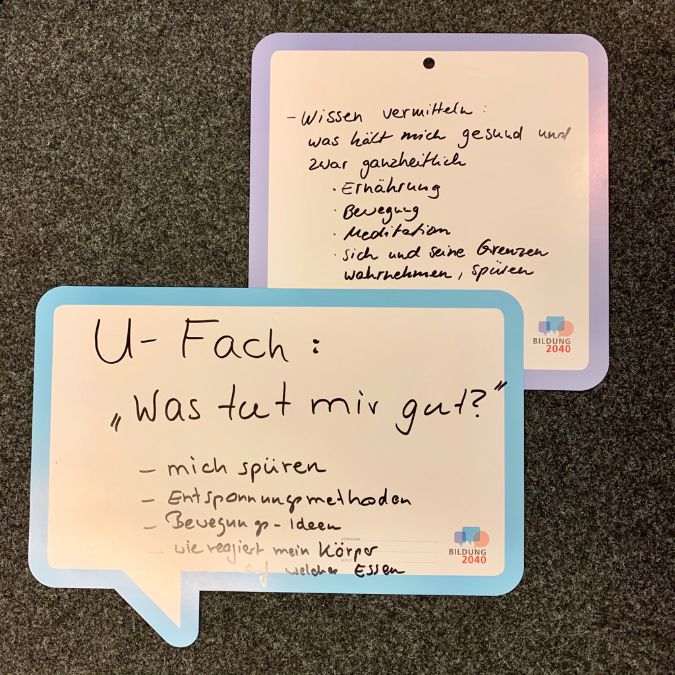 - Wissen vermitteln:
was hält mich gesund und
zwar ganzheitlich
· Ernährung
· Bewegung
· Meditation
· sich und seine Grenzen
wahrnehmen, spüren
BILDUNG
2040
U-Fach:
„Was tut mir gut?"
- mich spüren
- Entspannungsmethoden
- Bewegungs-Ideen
- wie reagiert mein Körper
auf welches Essen
BILDUNG
2040